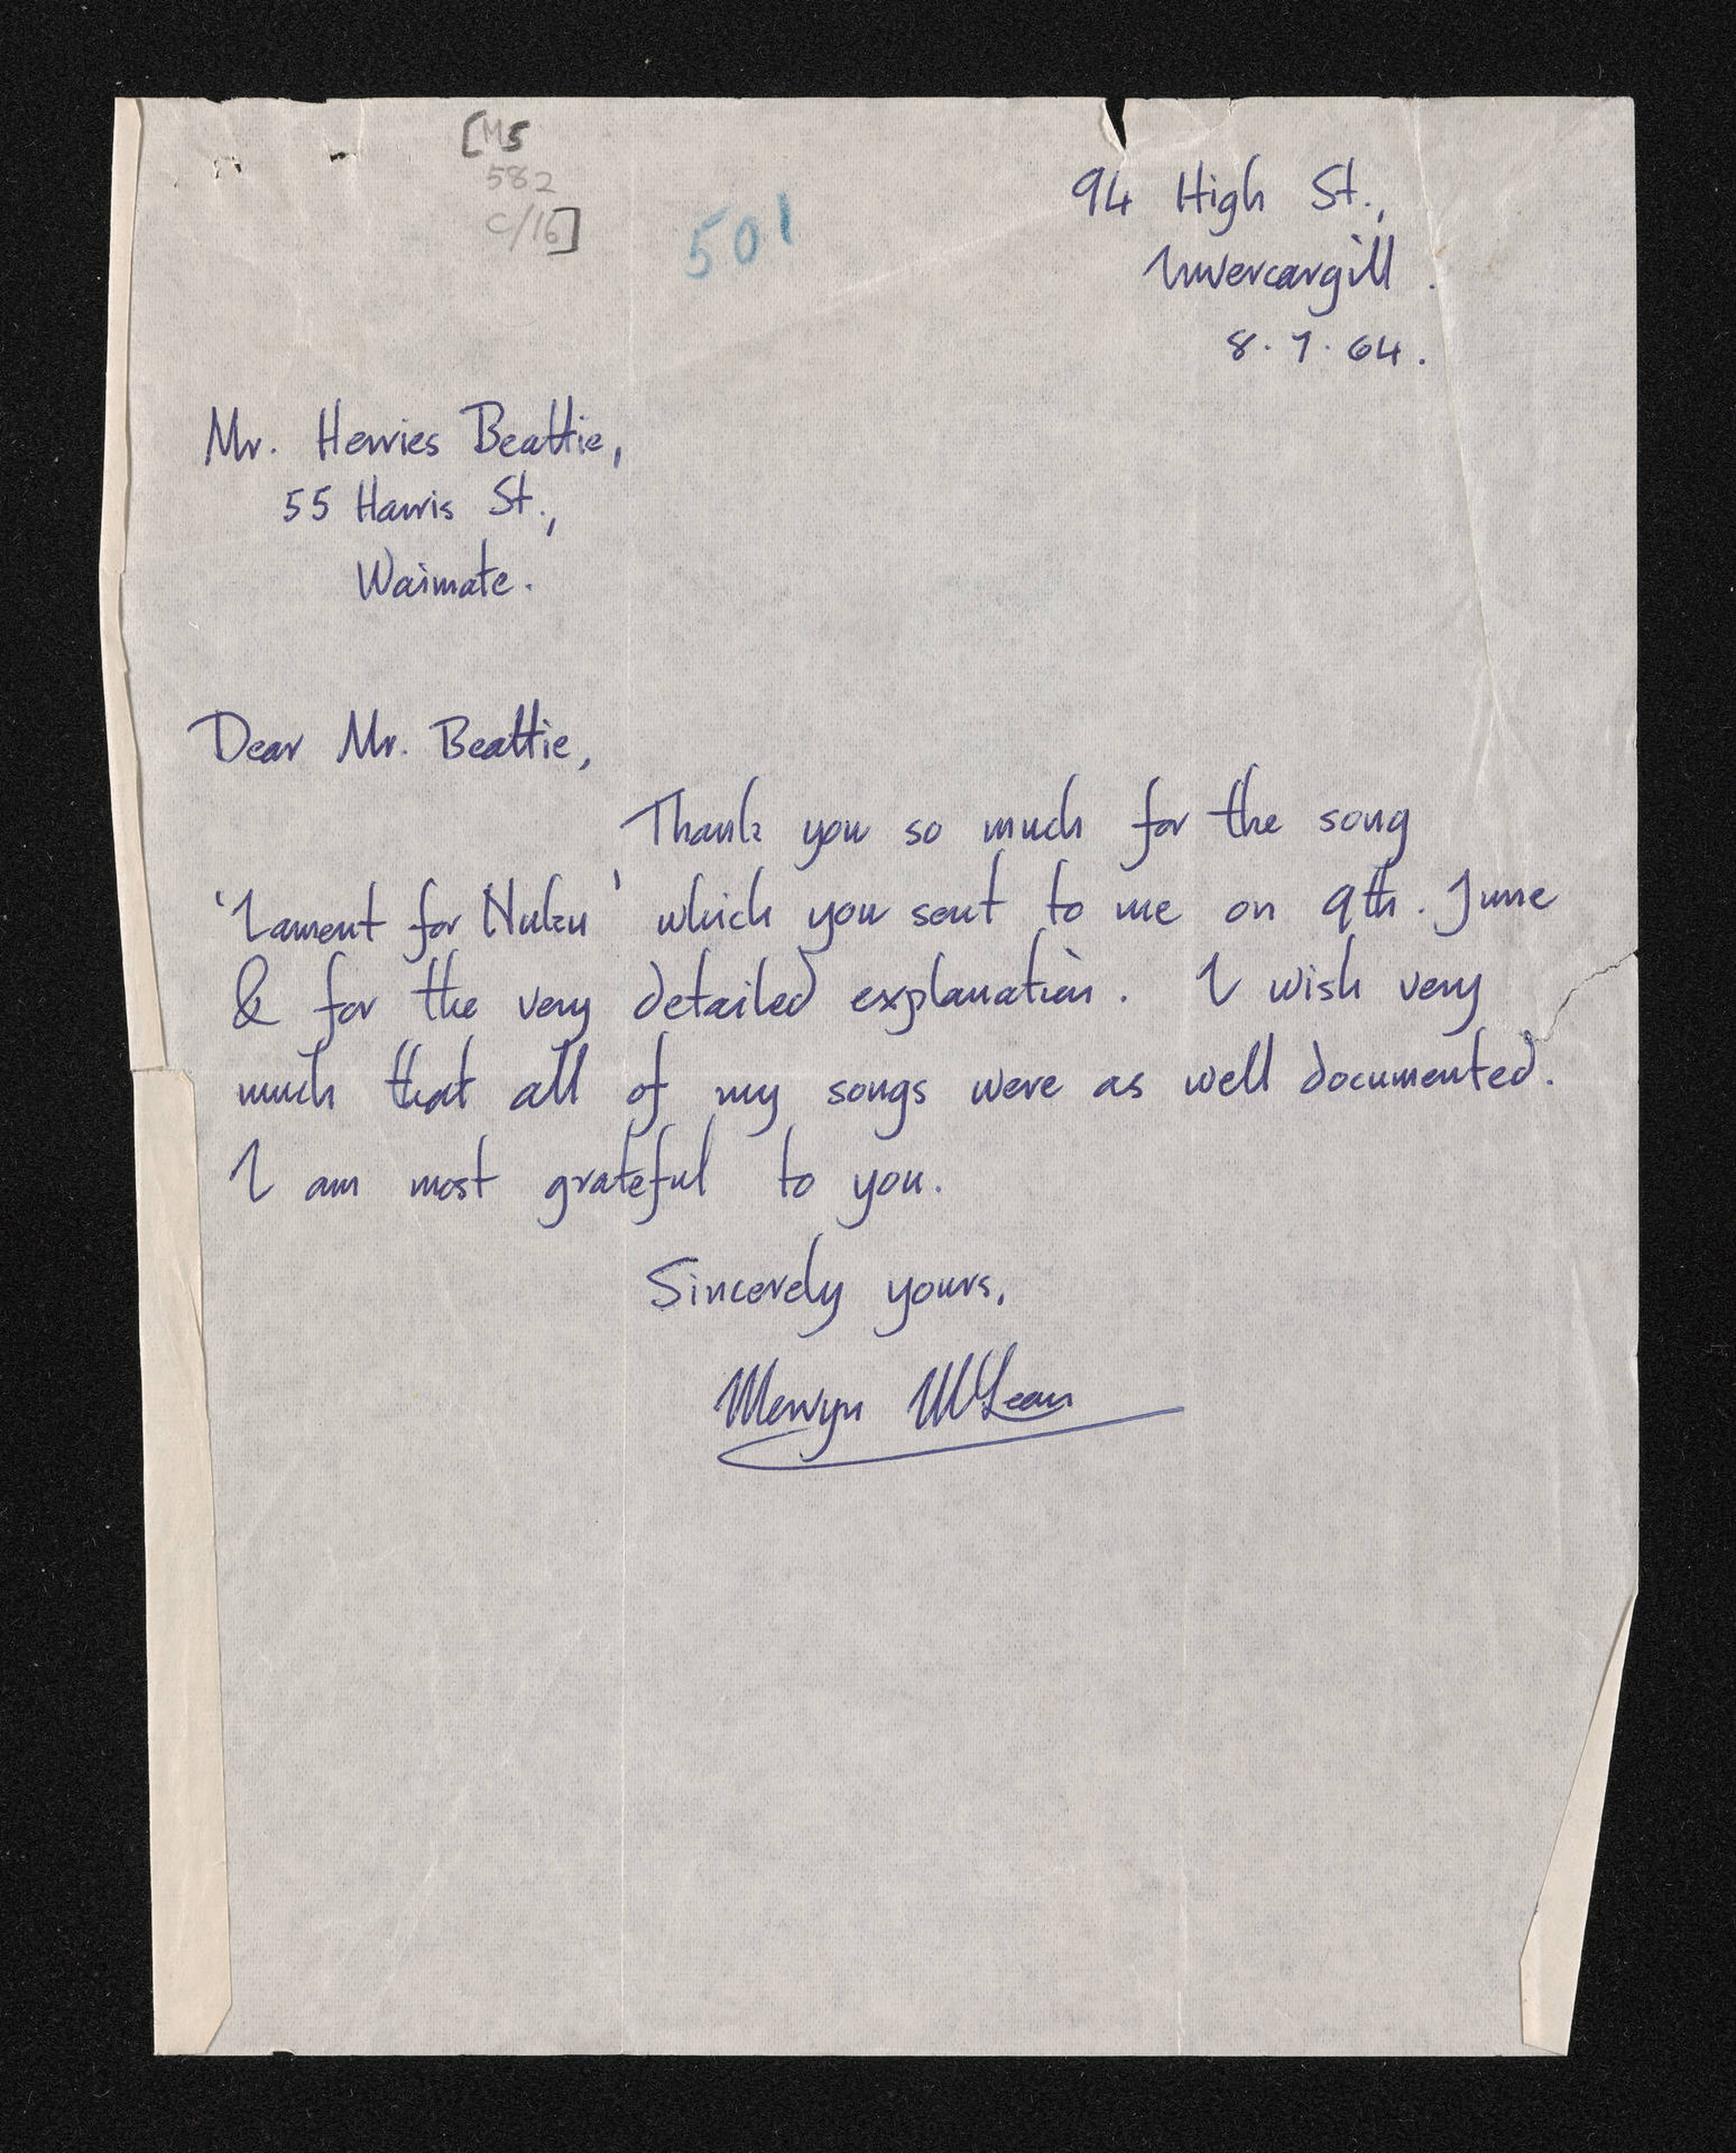 [MS
582
C/16]
501
94 High St.,
Invercargill.
8.7.64.
Mr. Herries Beattie,
55 Harris St.,
Waimate.
Dear Mr. Beattie,
Thank you so much for the song
'Lament for Nuku' which you sent to me on 9th. June
& for the very detailed explanation. I wish very
much that all of my songs were as well documented.
I am most grateful to you.
Sincerely yours,
Mervyn McLean